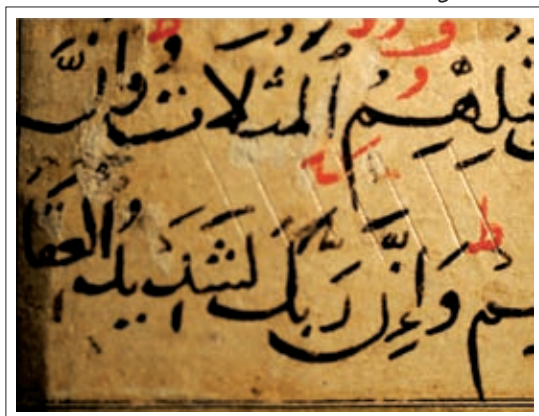 ـبْلِهِمُ الْمَثُلَاتُ وَإِنَّ
ـهِمْ ط وَإِنَّ رَبَّكَ لَشَدِيدُ العِقَا